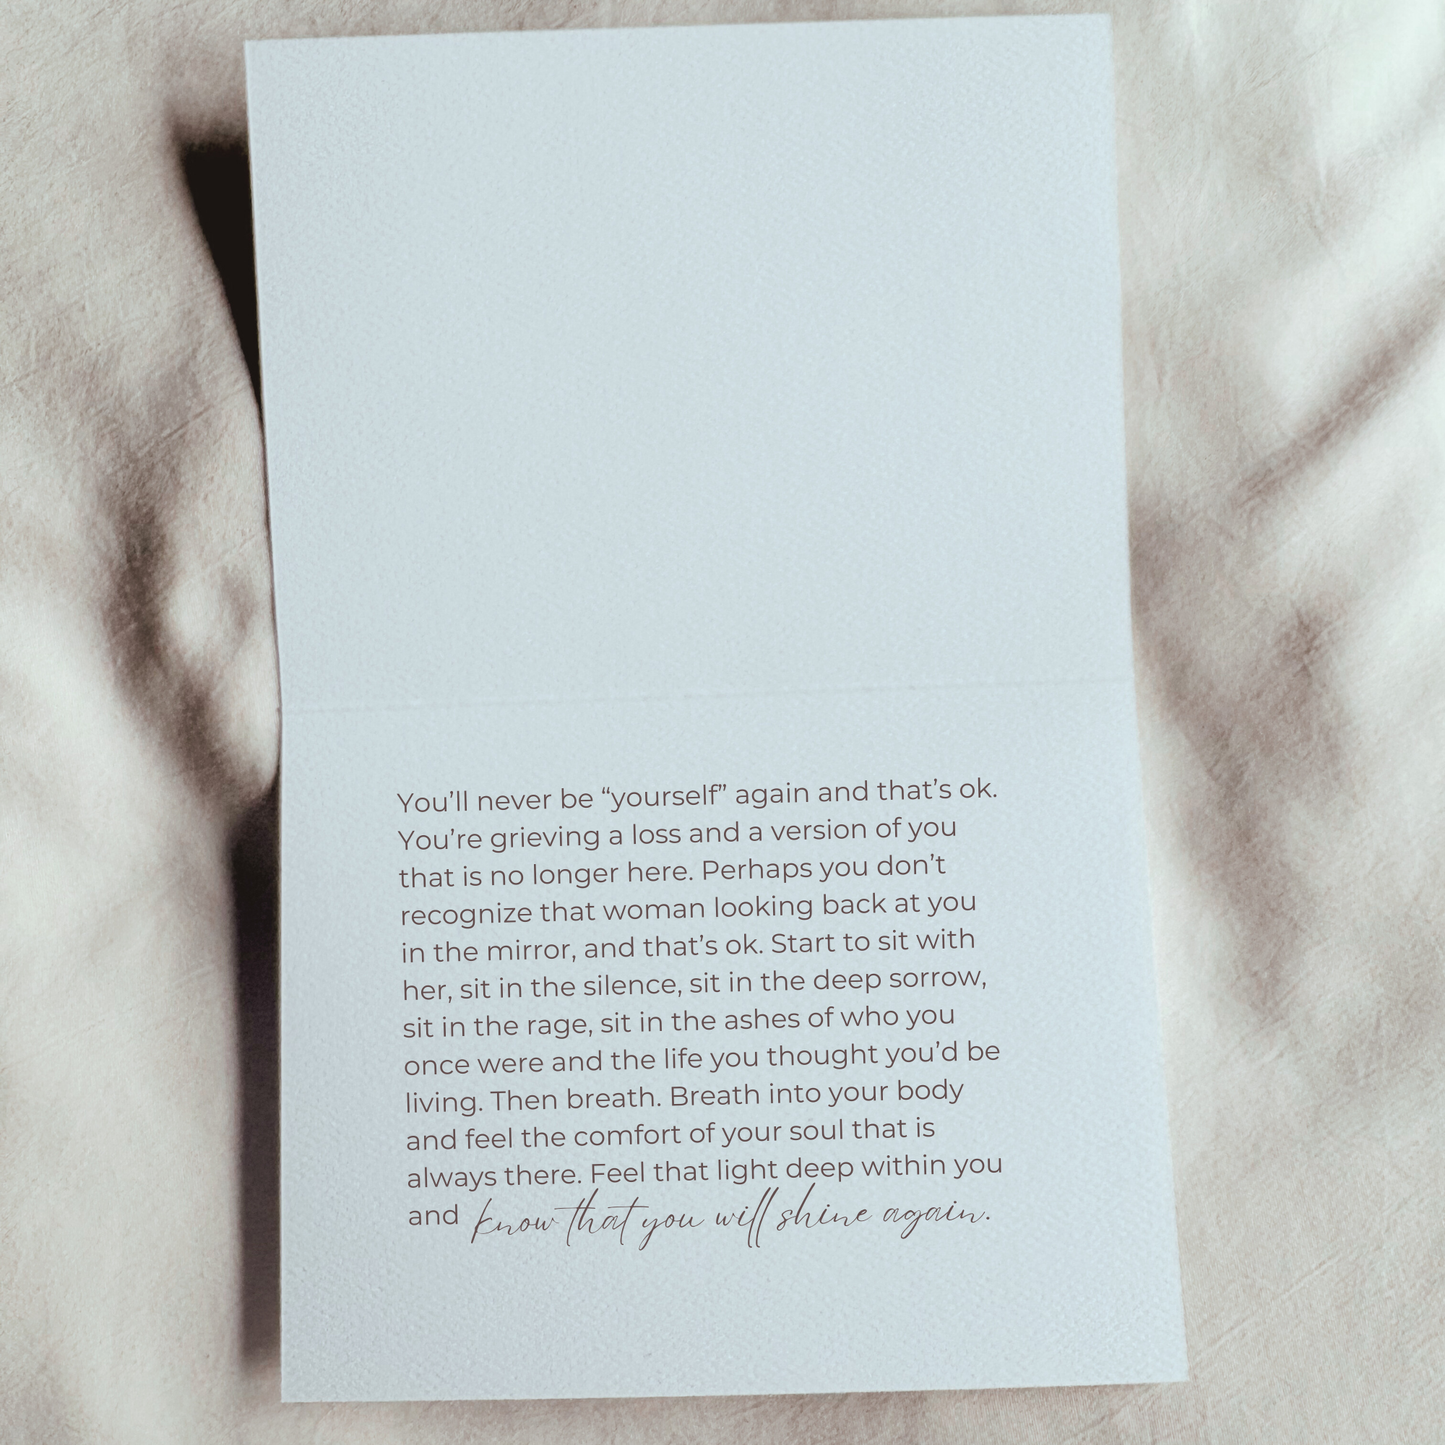 You'll never be “yourself” again and that's ok.
You're grieving a loss and a version of you
that is no longer here. Perhaps you don't
recognize that woman looking back at you
in the mirror, and that's ok. Start to sit with
her, sit in the silence, sit in the deep sorrow,
sit in the rage, sit in the ashes of who you
once were and the life you thought you'd be
living. Then breath. Breath into your body
and feel the comfort of your soul that is
always there. Feel that light deep within you
and know that you will shine again.